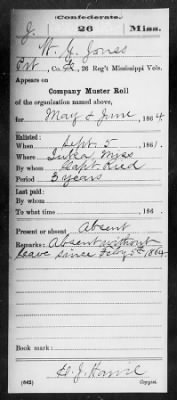 Confederate.
J. 26 Miss.
W. G. Jones
Pvt, Co. K, 26 Reg't Mississippi Vols.
Appears on
Company Muster Roll
of the organization named above,
for May & June, 1864
Enlisted:
When Sept. 5, 1861.
Where Iuka Miss
By whom Capt. Reed
Period 3 years
Last paid:
By whom
To what time , 186 .
Present or absent Absent
Remarks: Absent without
leave since Feby 5th 1864
Book mark:
(642) Copyist.